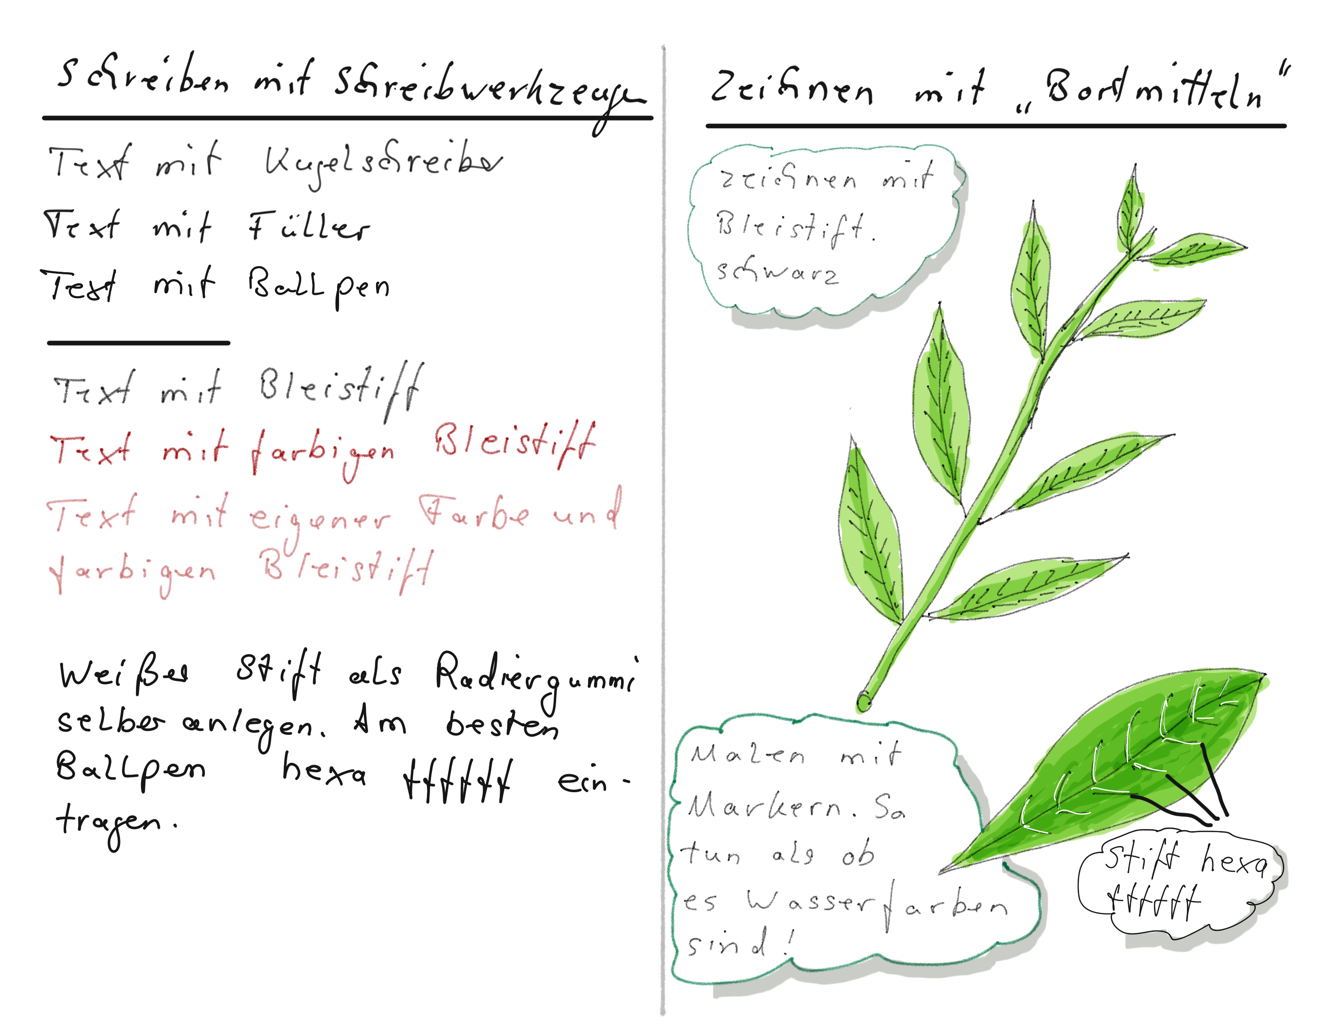 Schreiben mit Schreibwerkzeugen
Text mit Kugelschreiber
Text mit Füller
Text mit Ballpen
Text mit Bleistift
Text mit farbigen Bleistift
Text mit eigener Farbe und
farbigen Bleistift
Weißer Stift als Radiergummi
selber anlegen. Am besten
Ballpen hexa ffffff ein-
tragen.
Zeichnen mit „Bordmitteln“
zeichnen mit
Bleistift.
schwarz
Malen mit
Markern. So
tun als ob
es Wasserfarben
sind!
Stift hexa
ffffff